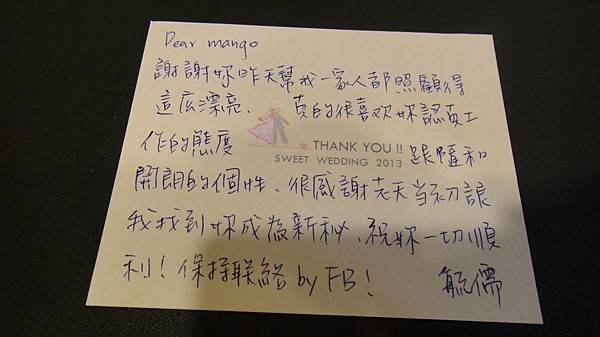 Dear mango
謝謝妳昨天幫我一家人都照顧得
這広漂亮、真的很喜欢妳認真工
作的態度
THANK YOU !!
SWEET WEDDING 2013
跟隨和
開朗的個性、很感謝老天当初讓
我找到妳成為新秘、祝妳一切順
利！保持联絡 by FB！
毓儒